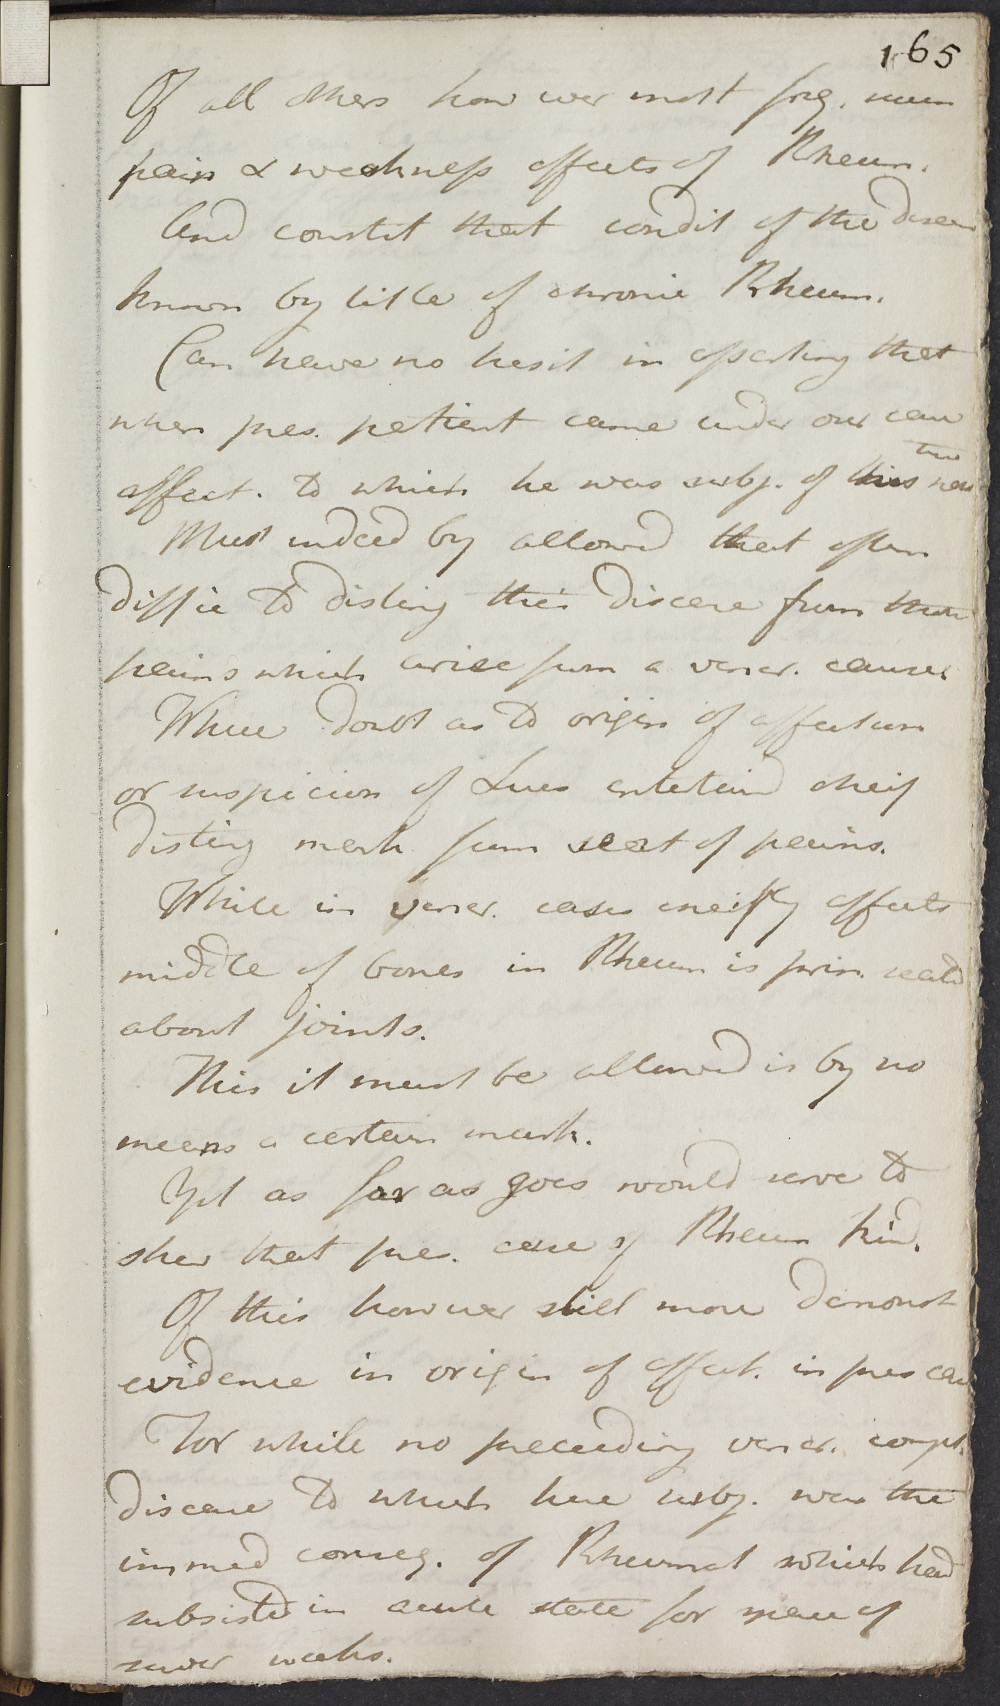 165
Of all others however most freq. numb
pain & weakness effects of Rheum.
And constit that condit of the disease
known by title of chronic Rheum.
Can have no hesit in asserting that
when pres. patient came under our care
affect. to which he was subj. of this nat
true
Must indeed by allowed that often
diffic to disting this disease from those
pains which arise from a vener. cause
Where doubt as to origin of affection
or suspicion of Lues entertaind cheif
disting mark from seat of pains.
While in vener. cases cheifly affects
middle of bones in Rheum is prin. seated
about joints.
This it must be allowed is by no
means a certain mark.
Yet as far as goes would serve to
shew that pres. case of Rheum kind.
Of this however still more demonst
evidence in origin of affect. in pres case
For while no preceeding vener. compl.
disease to which here subj. was the
immed conseq. of Rheumat which had
subsisted in acute state for space of
sever weeks.